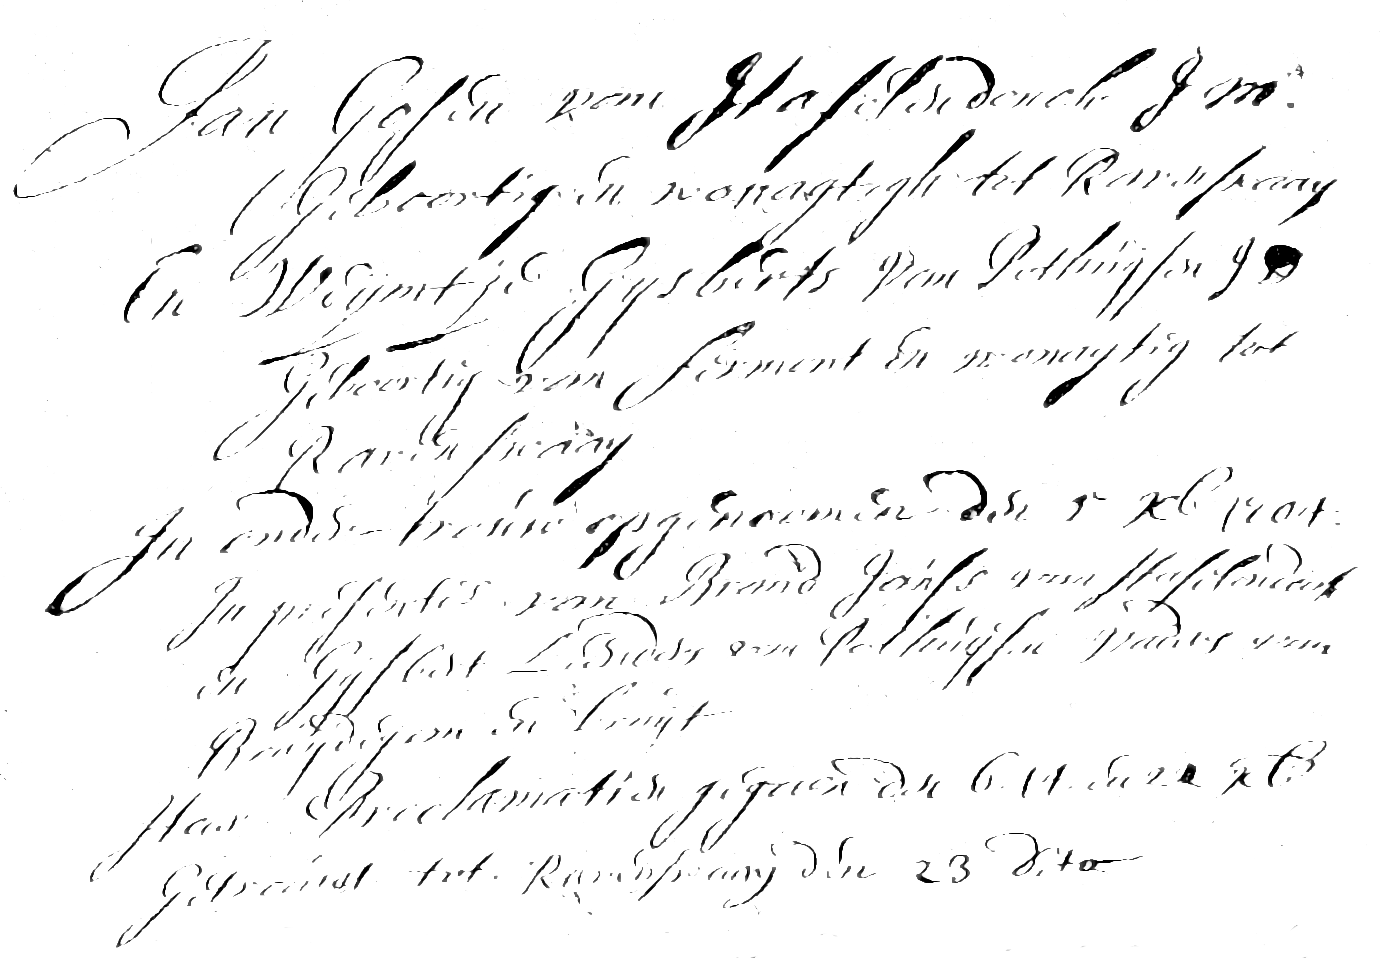 Jan Gosen van Haselendonck J m:
Geboortig en wonagtigh tot Ravenswaay
En Weijmtje Gysberts van Velthuijsen J
Geboortig van  en wonagtig tot
Ravenswaay
In onder-trouw opgenoomen den 5 xb 1704.
In presentie van Brand Janss van Haselendonk
en Gijsbert van Velthuijsen vaders van
Bruijdegom en bruijt
Haar Proclamatien gegeven den 6. 14. en 21 xb
Getrouwt tot Ravenswaaij den 23 dito